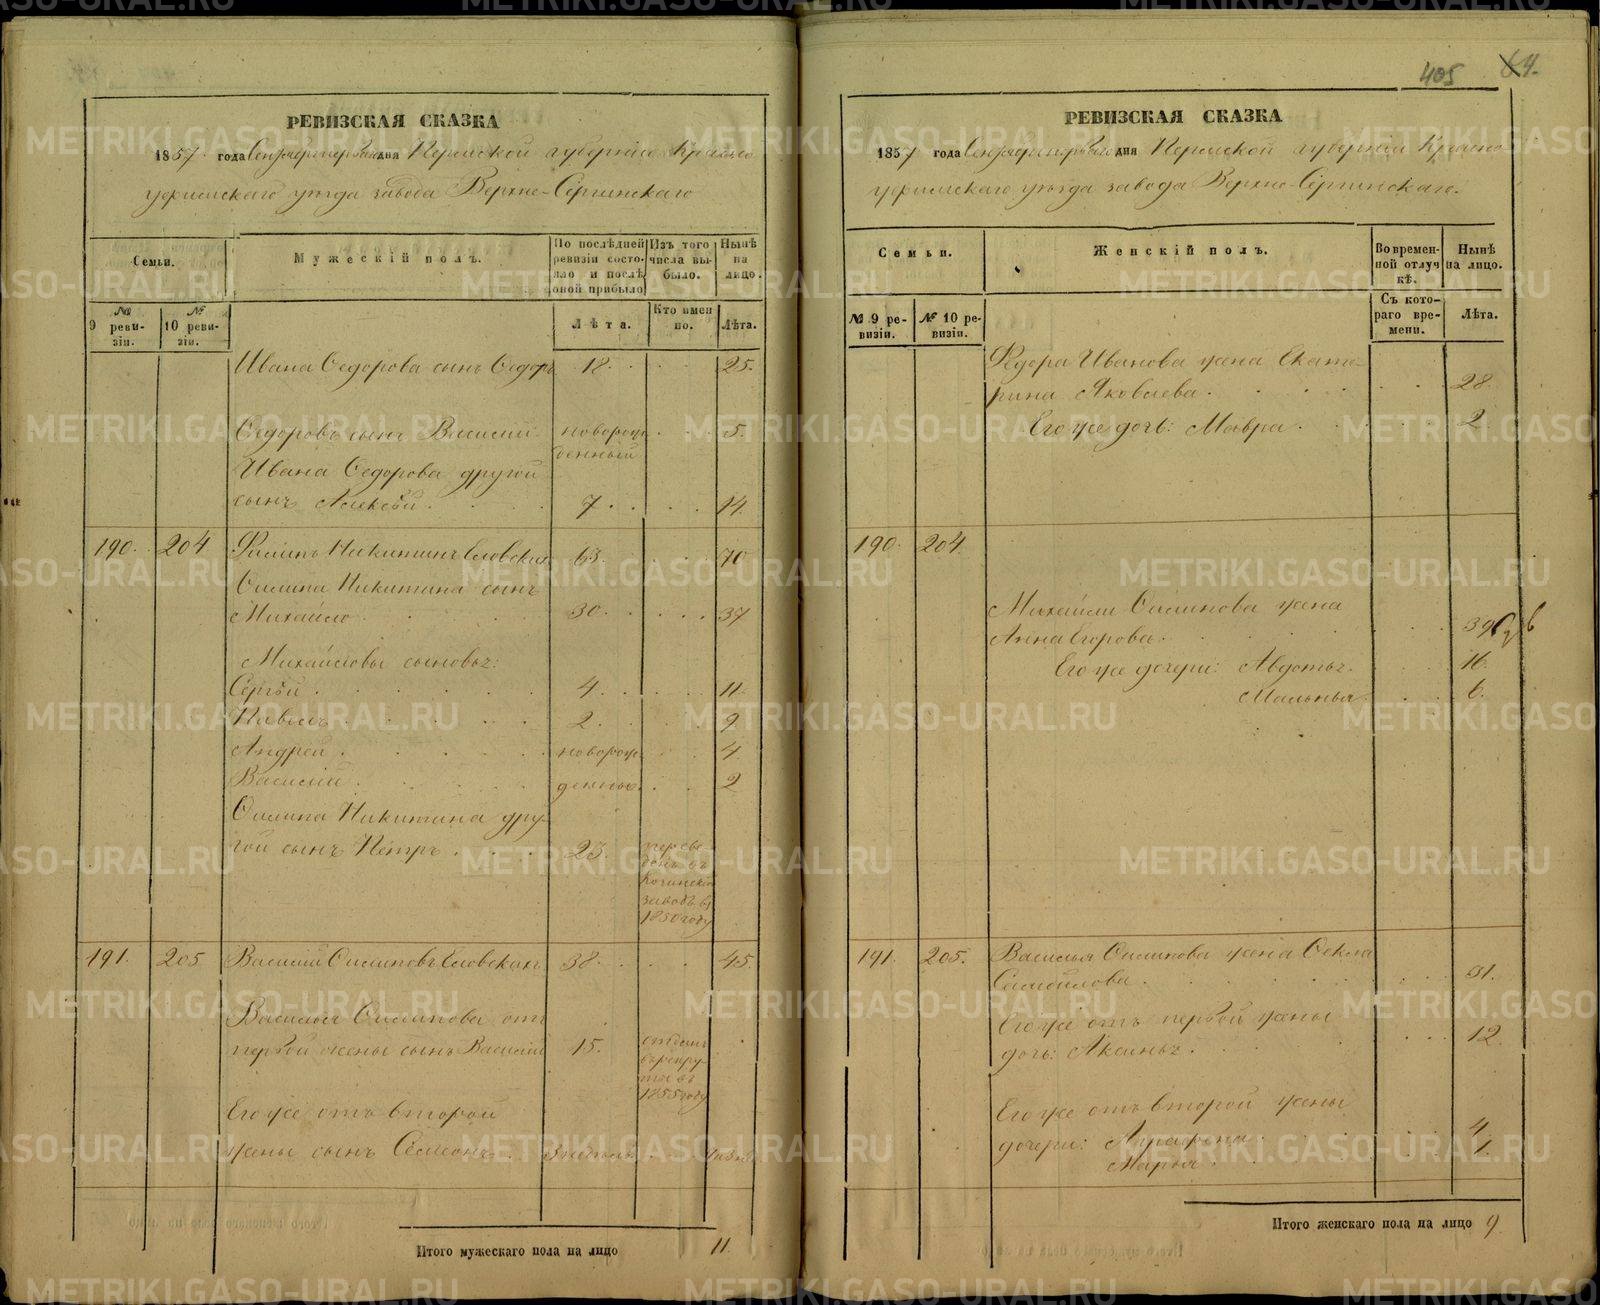 РЕВИЗСКАЯ СКАЗКА
1857 года Сентября первого дня Пермской губернiи Красно
уфимскаго уѣзда завода Верхне-Сергинскаго
Семьи.
Мужескiй полъ.
По послѣдней ревизiи состояло и послѣ оной прибыло
Изъ того числа выбыло.
Нынѣ на лицо.
№ 9 ревизiи.
№ 10 ревизiи.
Лѣта.
Кто именно.
Лѣта.
Ивана Ѳедорова сынъ Ѳедоръ 18. 25.
Ѳедоровъ сынъ Василiй новорожденный 5.
Ивана Ѳедорова другой
сынъ Алексѣй. 7. 14.
190. 204 Филипъ Никитинъ Еловскихъ 63. 70
Филипа Никитина сынъ
Михайло. 30. 37
Михайловы сыновья:
Сергѣй. 4. 11.
Павелъ. 2. 9.
Андрей. новорож 4
Василiй. денные. 2
Филипа Никитина дру-
гой сынъ Петръ. 23. переведенъ въ
заводъ въ
1850 году
191. 205 Василiй Филиповъ Еловскихъ 38. 45.
Василья Филипова отъ
первой жены сынъ Василiй 15. отданъ
въ рекру-
ты въ
1855 году
Его же отъ второй
жены сынъ Семенъ.
Итого мужескаго пола на лицо 11.
405 64.
РЕВИЗСКАЯ СКАЗКА
1857 года Сентября первого дня Пермской губернiи Красно
уфимскаго уѣзда завода Верхне-Сергинскаго.
Семьи.
Женскiй полъ.
Во временной отлучкѣ.
Нынѣ на лицо.
№ 9 ревизiи.
№ 10 ревизiи.
Съ котораго времени.
Лѣта.
Ѳедора Иванова жена Екате-
рина Яковлева. 28.
Его же дочь: Мавра. 2.
190. 204
Михайлы Филипова жена
Анна Егорова. 39
Его же дочери: Авдотья. 16.
Маланья. 6.
191. 205. Василья Филипова жена Ѳекла
Самойлова. 31.
Его же отъ первой жены
дочь: Аксинья. 12.
Его же отъ второй жены
дочери: Аграфена. 4.
Марья. 1.
Итого женскаго пола на лицо 9
METRIKI.GASO-URAL.RU